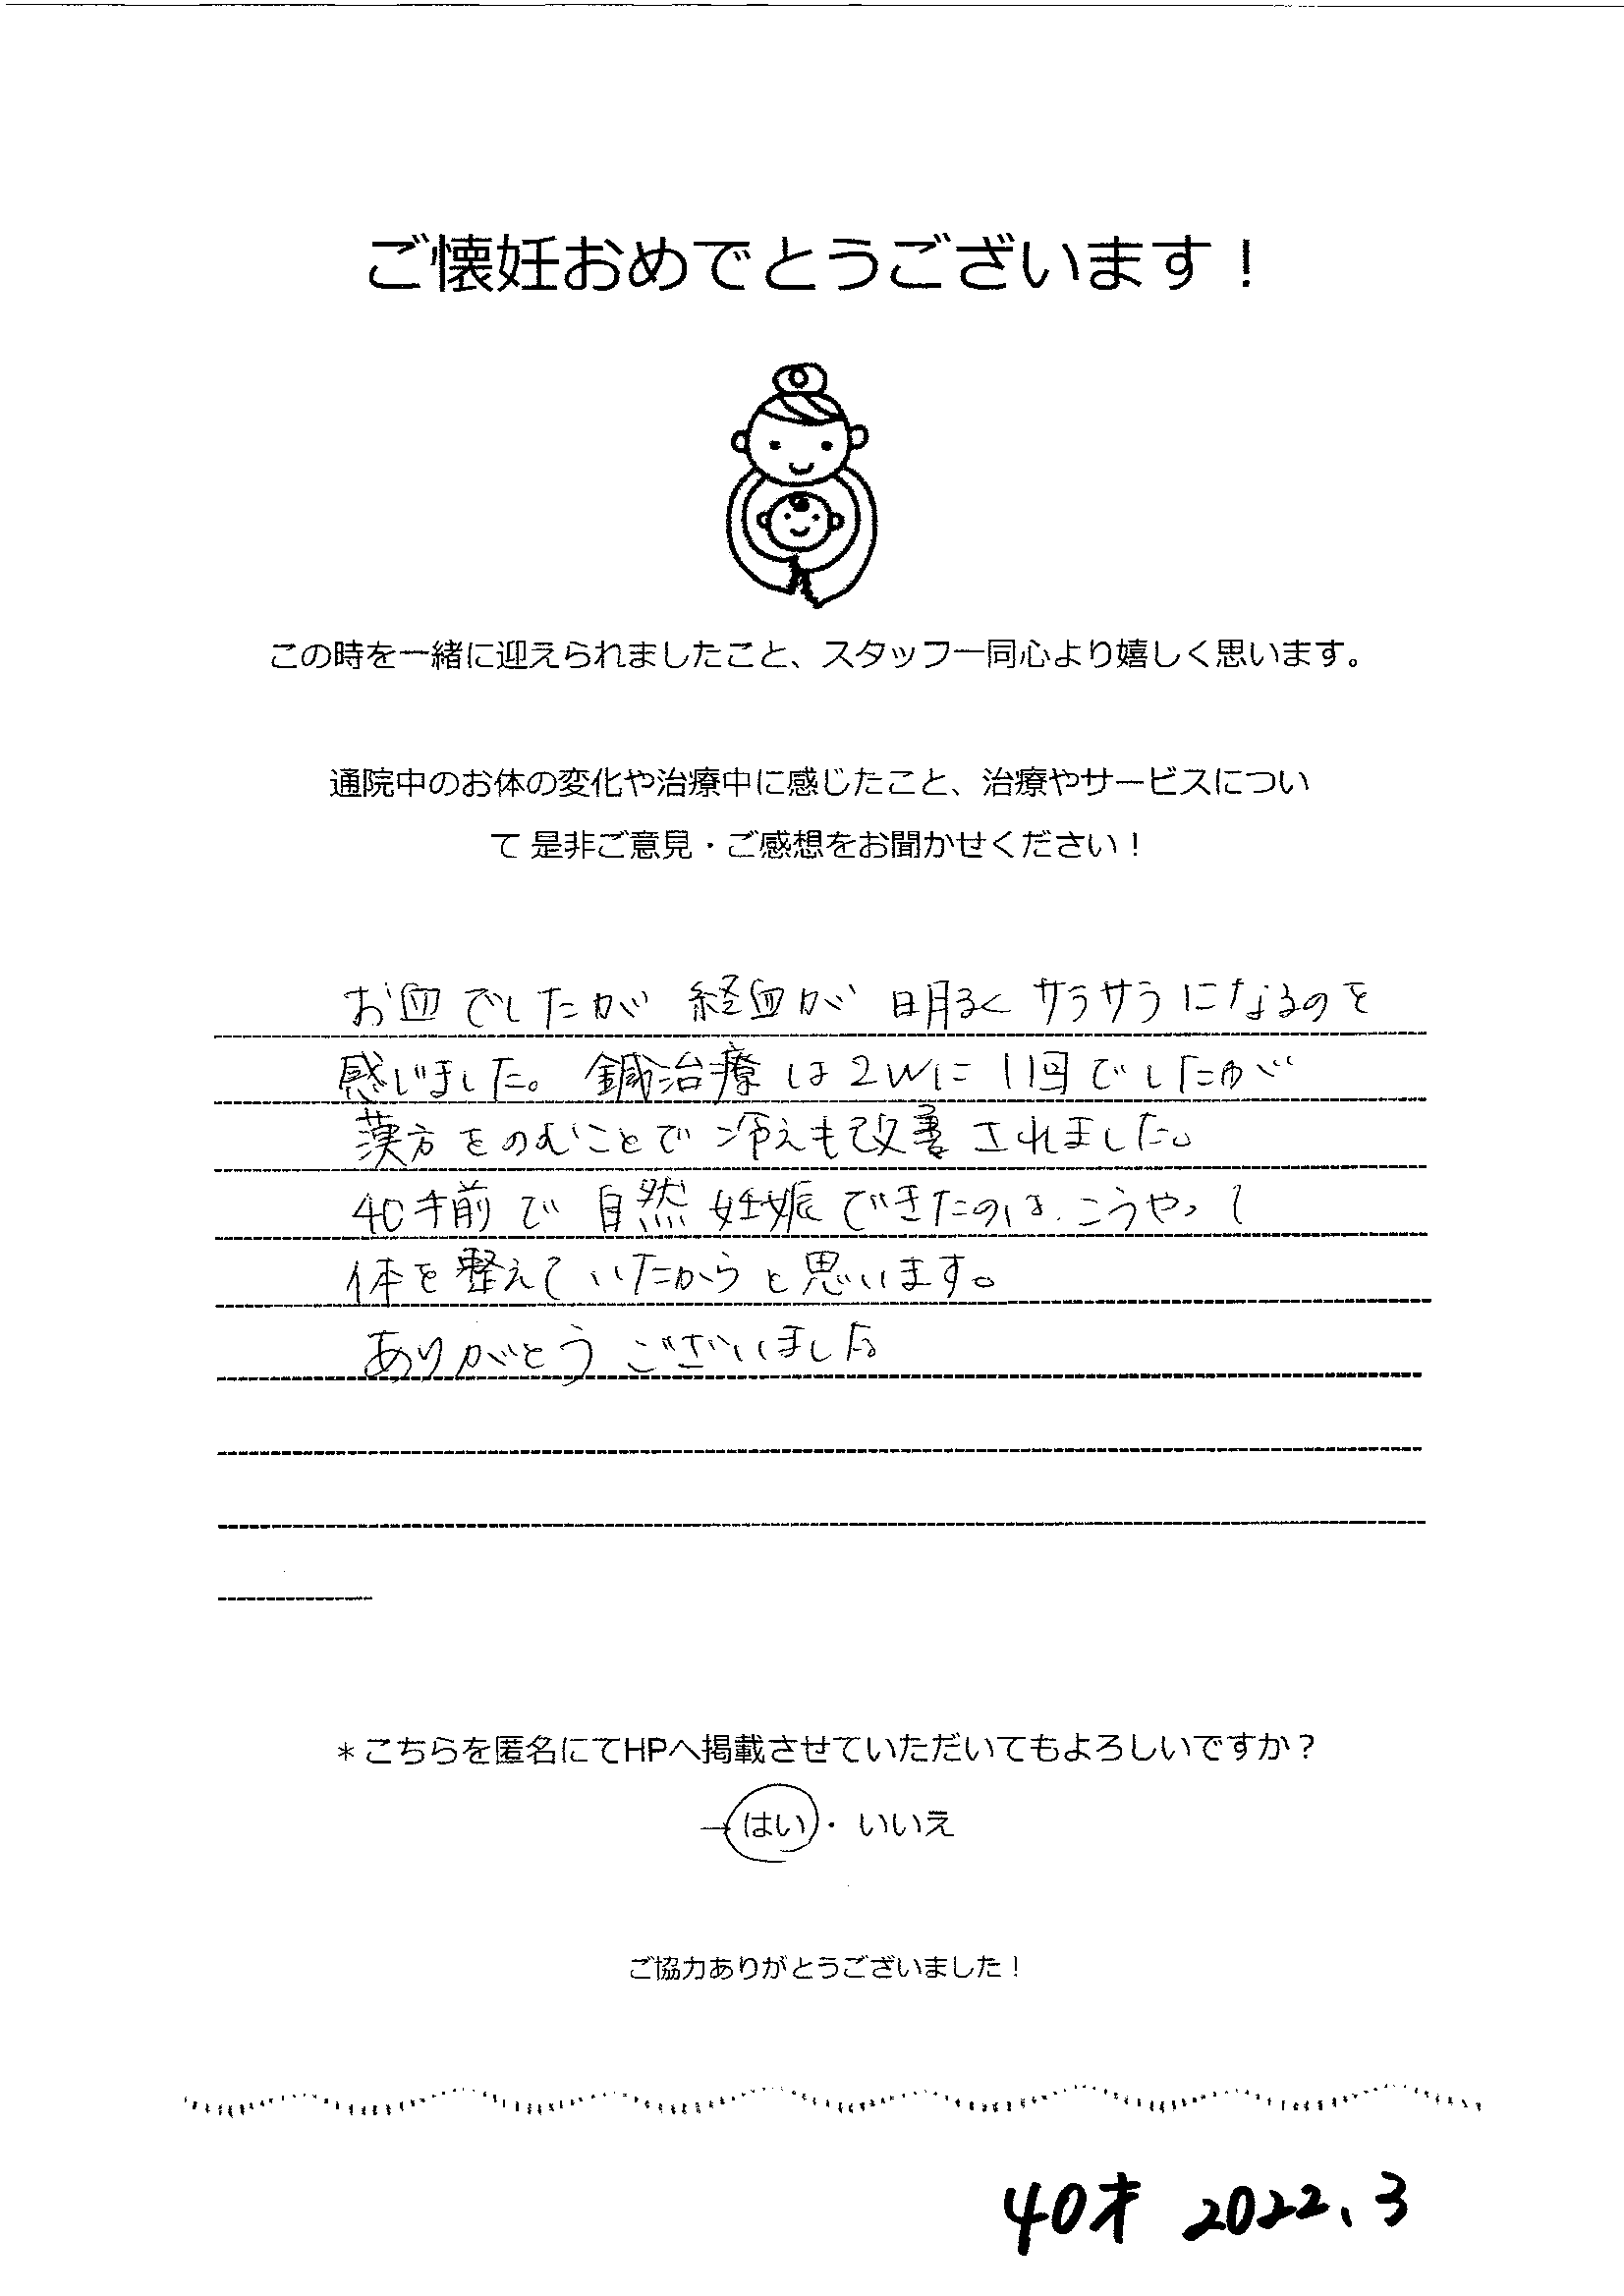 ご懐妊おめでとうございます！
この時を一緒に迎えられましたこと、スタッフ一同心より嬉しく思います。
通院中のお体の変化や治療中に感じたこと、治療やサービスについ
て 是非ご意見・ご感想をお聞かせください！
お血でしたが 経血が 明るく サラサラになるのを
感じました。鍼治療は2Wに1回でしたが
漢方をのむことで冷えも改善されました。
40才前で自然妊娠できたのは、こうやって
体を整えていたからと思います。
ありがとうございました。
＊こちらを匿名にてHPへ掲載させていただいてもよろしいですか？
→はい・いいえ
ご協力ありがとうございました！
40才 2022.3